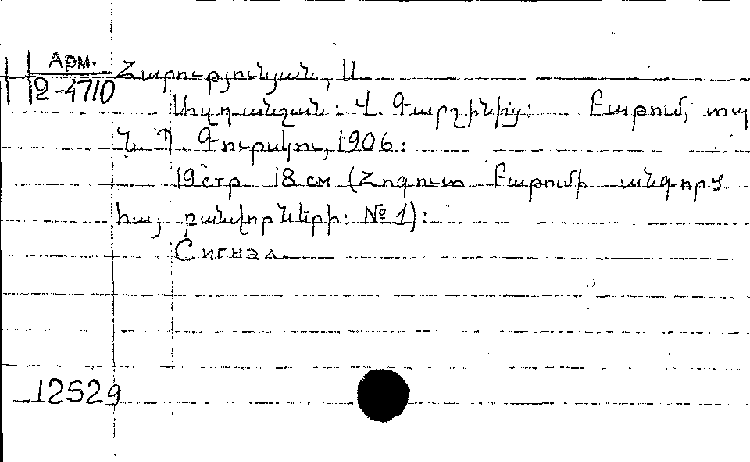 Арм.
2-4710
Հարությունյան, Ա.
Ազդանշան: Վ. Գարշինից: Բաթում, տպ
Ն. Պ. Գուրսկու, 1906:
19 стр 18 см (Հօգուտ Բաթումի անգործ
հայ բանվորների: № 1):
Сигнал
12529